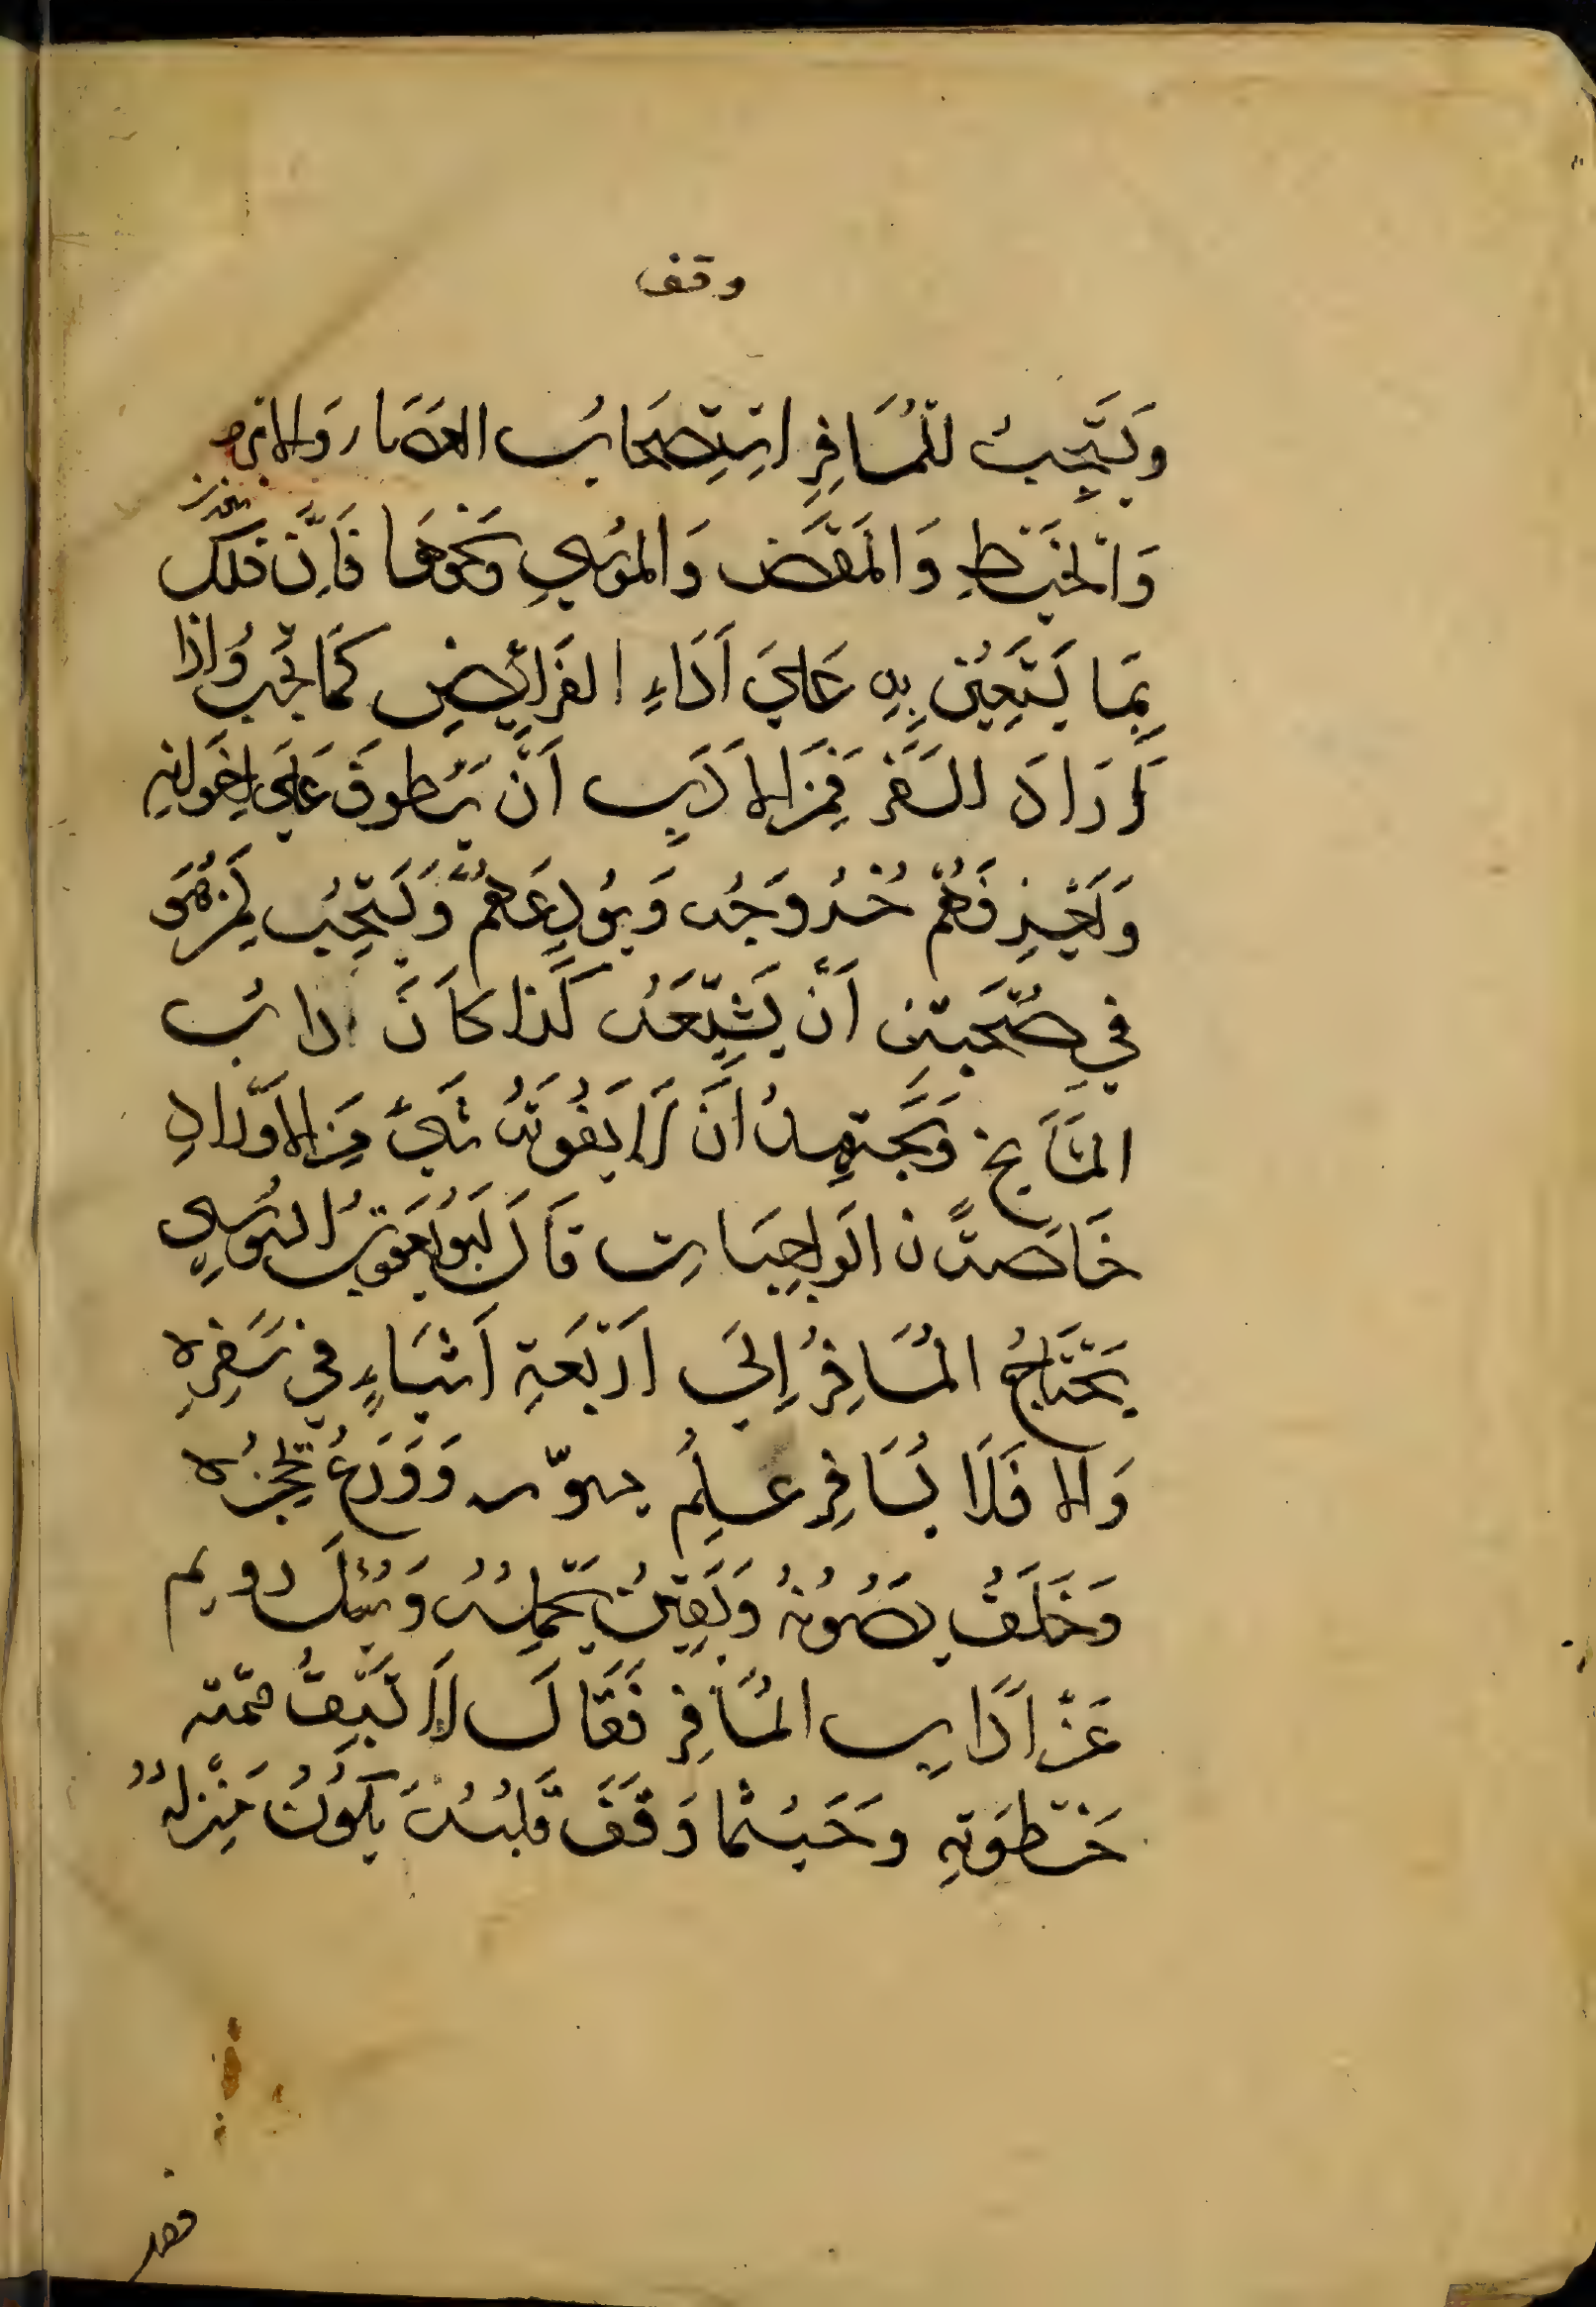 وقف
ويستحب للمسافر استصحاب العصا والابرة
والخيط والمقص والموسى ونحوها فان ذلك
مما يستعين به على اداء الفرائض كما يجب واذا
اراد السفر فمن الادب ان يطوف على اخوانه
ويعرفهم خروجه ويودعهم ويستحب لمن هو
في صحبته ان يشيعه كذا كان اداب
المشايخ ويجتهد ان لا يفوته شيء من الاوراد
خاصة الواجبات قال ابو يعقوب السوسي
يحتاج المسافر الى اربعة اشياء في سفره
والا فلا يسافر علم يسوسه وورع يحجزه
وخلق يصونه ويقين يحمله وسئل رويم
عن اداب المسافر فقال لا تسبق همته
خطوته وحيثما وقف قلبه يكون منزله